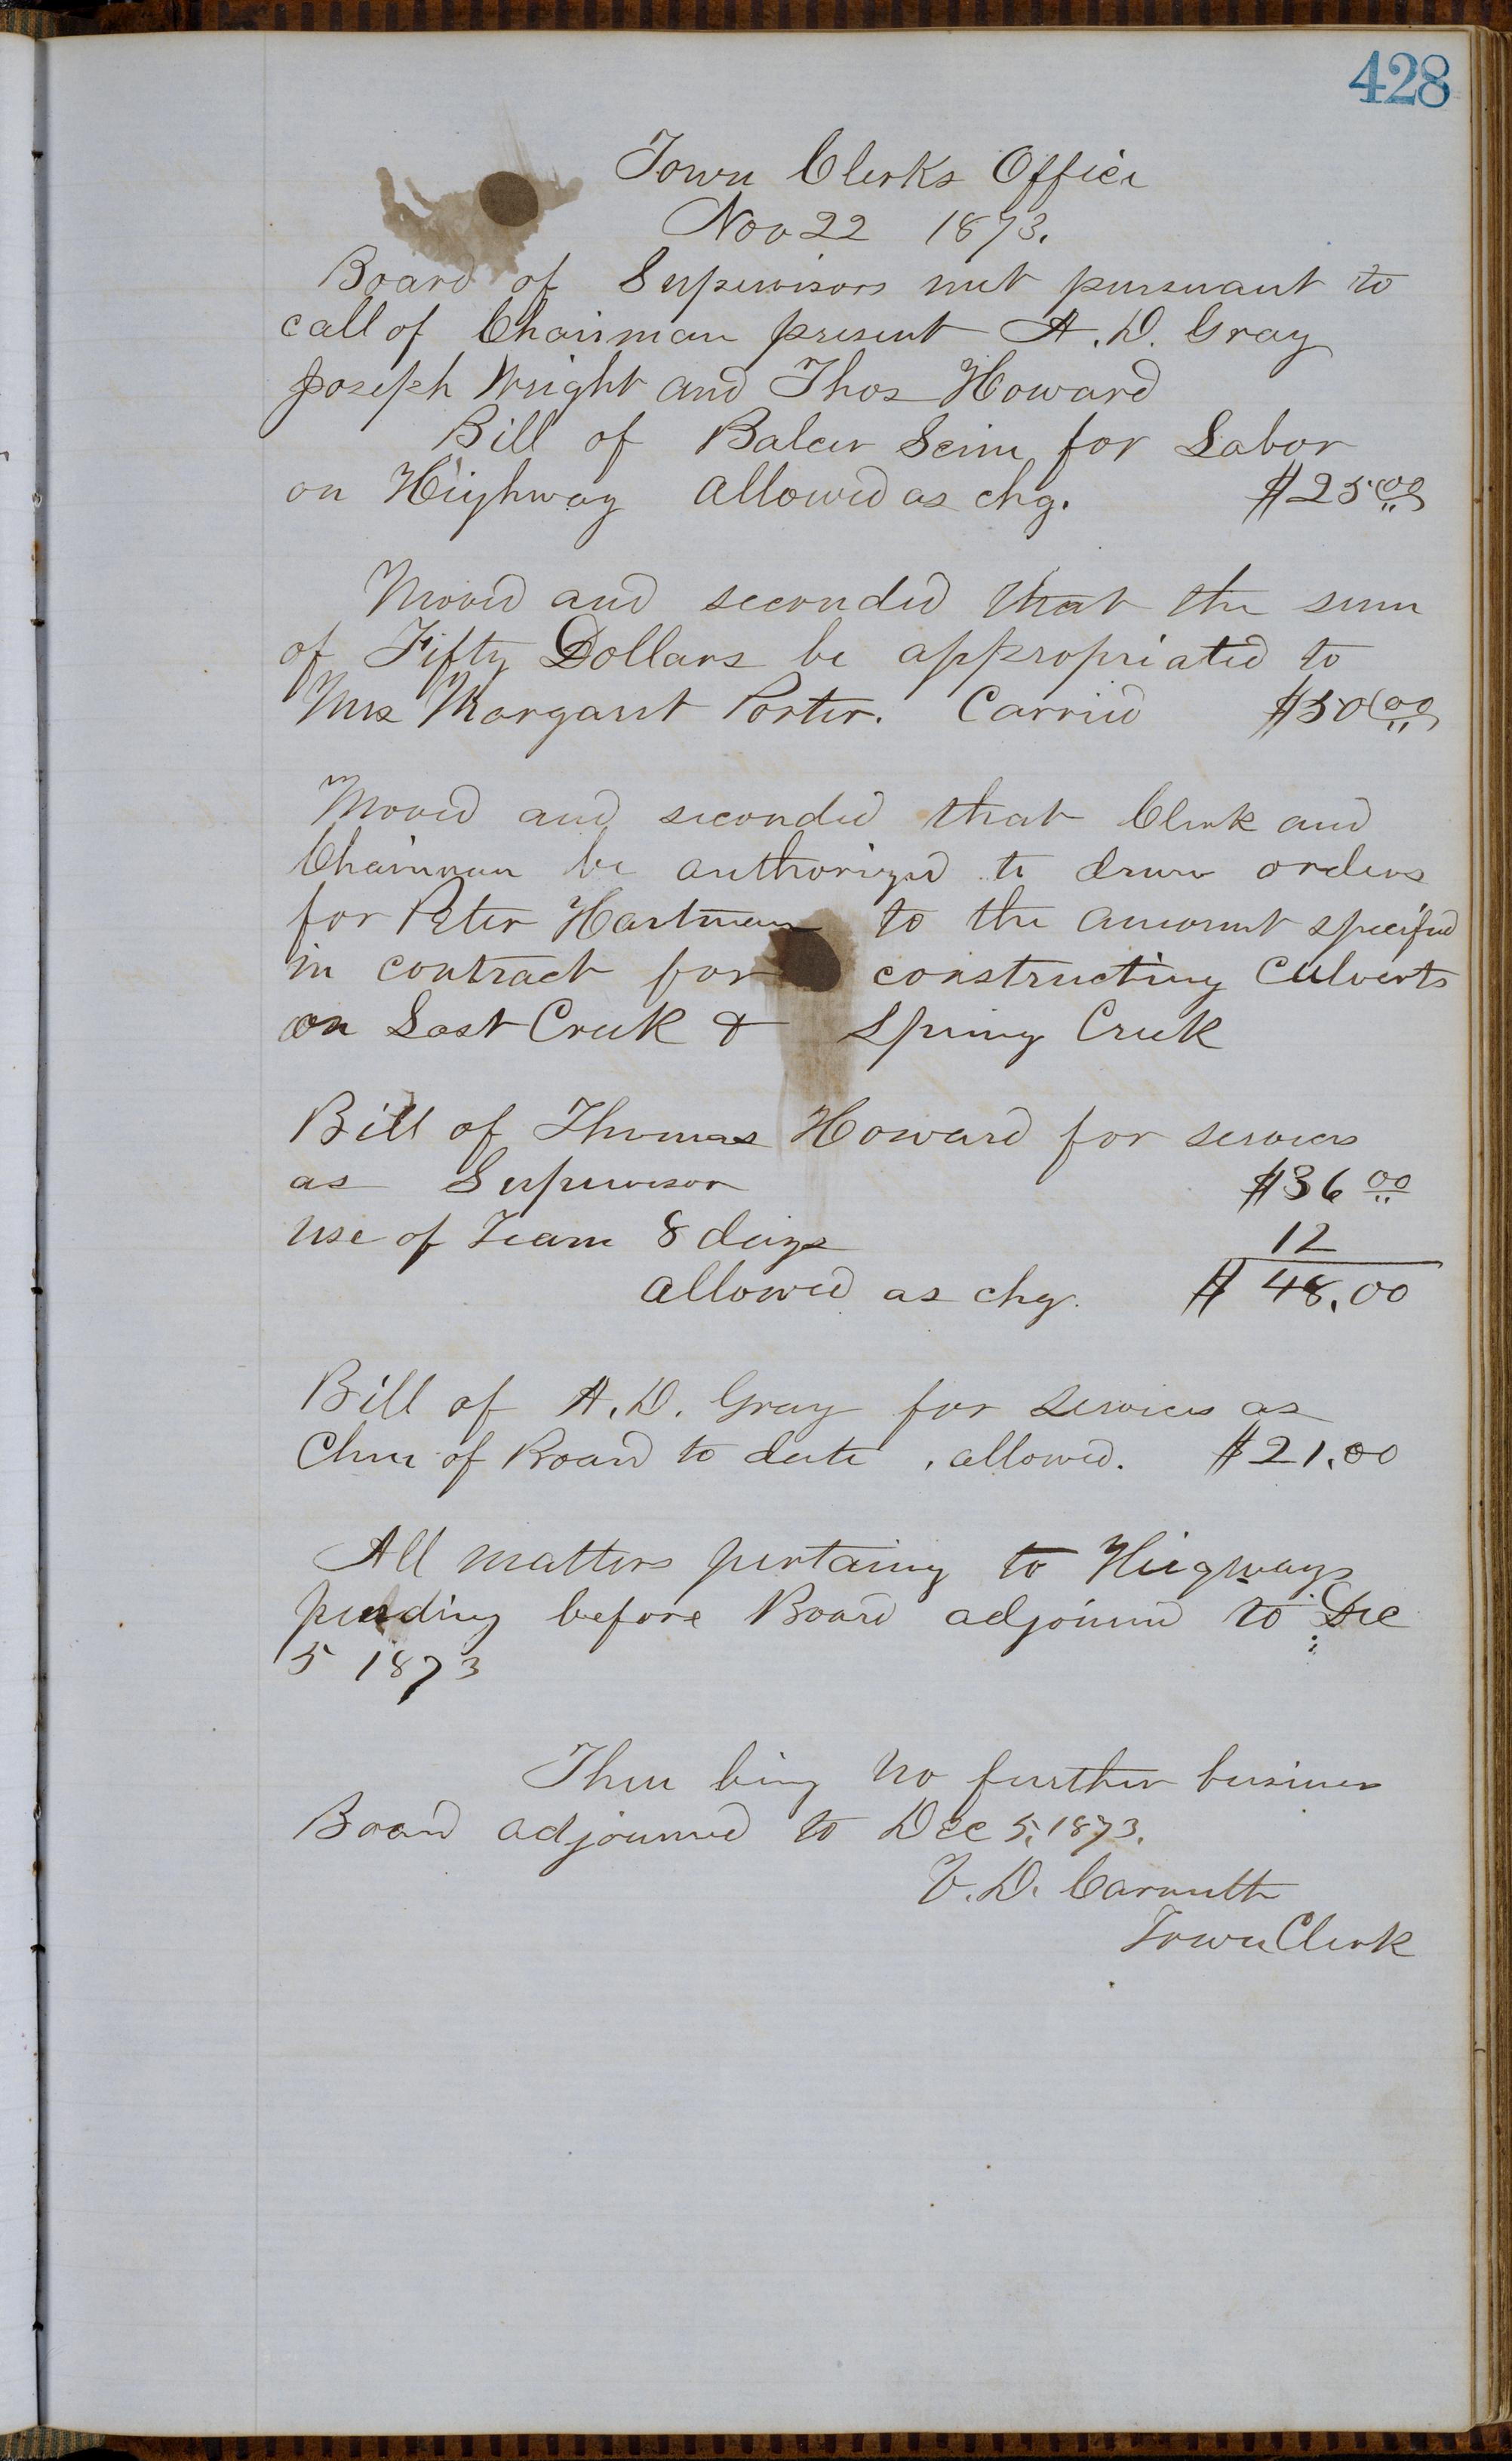 428
Town Clerks Office
Nov 22 1873.
Board of Supervisors met pursuant to
call of Chairman present A. D. Gray
Joseph Wright and Thos Howard
Bill of for Labor
on Highway allowed as chg. $25.00
Moved and seconded that the sum
of Fifty Dollars be appropriated to
Mrs Margaret Porter. Carried $50.00
Moved and seconded that Clerk and
Chairman be authorized to draw orders
for Peter Hartman to the amount specified
in contract for constructing Culverts
on Lost Creek & Spring Creek
Bill of Thomas Howard for services
as Supervisor $36.00
Use of Team 8 days 12
allowed as chg. $ 48.00
Bill of A. D. Gray for services as
Chm of Board to date, allowed. $21.00
All matters pertaing to Higways
pending before Board adjourned to Dec
5 1873
There being no further business
Board adjourned to Dec 5, 1873.
V. D. Carruth
Town Clerk